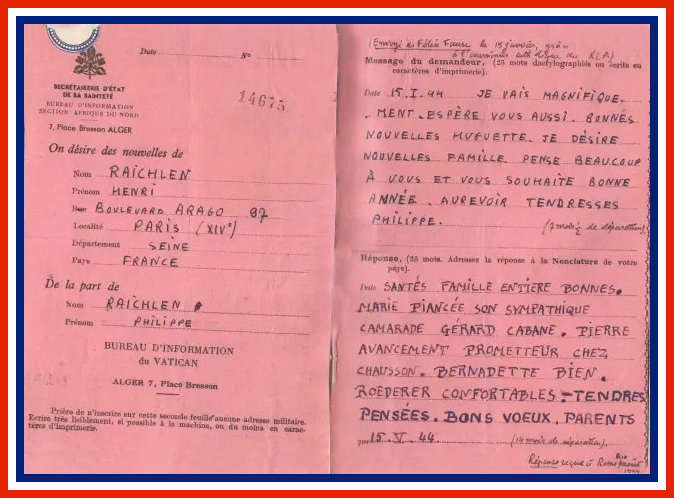 Date
N°
SECRÉTAIRERIE D'ÉTAT
DE SA SAINTETÉ
BUREAU D'INFORMATION
SECTION AFRIQUE DU NORD
14675
7, Place Bresson ALGER
On désire des nouvelles de
Nom RAICHLEN
Prénom HENRI
Rue BOULEVARD ARAGO 97
Localité PARIS (XIVe)
Département SEINE
Pays FRANCE
De la part de
Nom RAICHLEN
Prénom PHILIPPE
BUREAU D'INFORMATION
du VATICAN
ALGER 7, Place Bresson
Prière de n'inscrire sur cette seconde feuille aucune adresse militaire.
Ecrire très lisiblement, si possible à la machine, ou du moins en carac-
tères d'imprimerie.
le 15 janvier,
Message du demandeur. (25 mots dactylographiés ou écrits en
caractères d'imprimerie).
Date 15.I.44 JE VAIS MAGNIFIQUE-
MENT. ESPÈRE VOUS AUSSI. BONNES
NOUVELLES HUGUETTE. JE DÉSIRE
NOUVELLES FAMILLE. PENSE BEAUCOUP
À VOUS ET VOUS SOUHAITE BONNE
ANNÉE. AUREVOIR TENDRESSES
PHILIPPE. (7 mois ½ de séparation)
Réponse, (25 mots. Adressez la réponse à la Nonciature de votre
pays).
Date SANTÉS FAMILLE ENTIERE BONNES.
MARIE FIANCÉE SON SYMPATHIQUE
CAMARADE GÉRARD CABANE. PIERRE
AVANCEMENT PROMETTEUR CHEZ
CHAUSSON. BERNADETTE BIEN.
ROEDERER CONFORTABLES - TENDRES
PENSÉES. BONS VOEUX. PARENTS
15.V.44. (14 mois de séparation).
Réponse reçue à Rome